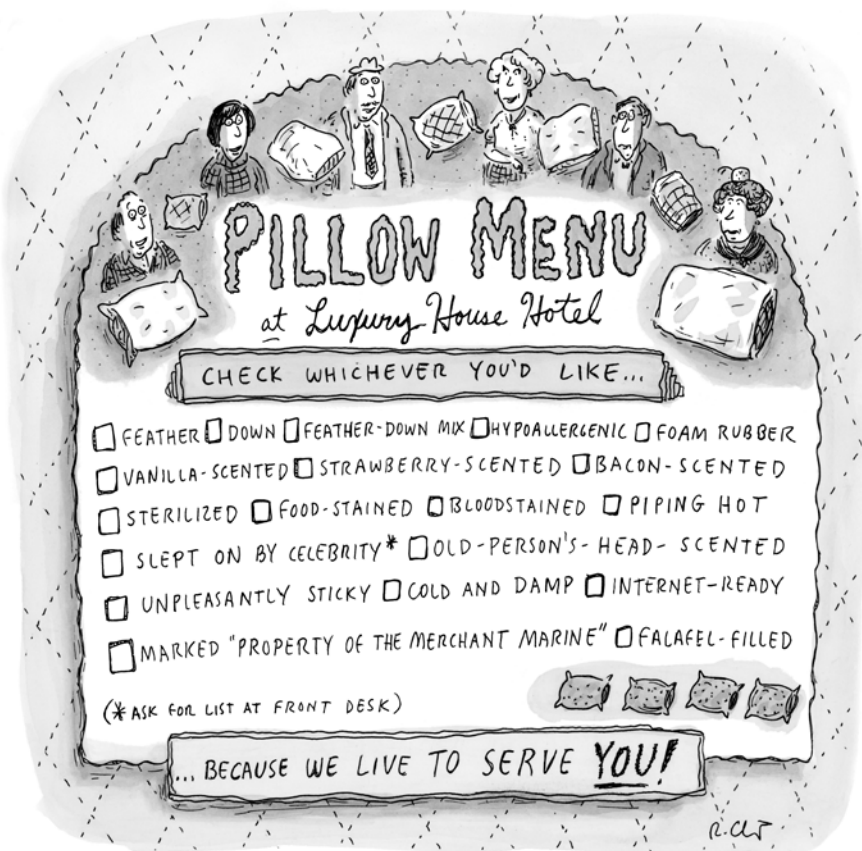 PILLOW MENU
at Luxury House Hotel
CHECK WHICHEVER YOU'D LIKE...
FEATHER DOWN FEATHER-DOWN MIX HYPOALLERGENIC FOAM RUBBER
VANILLA-SCENTED STRAWBERRY-SCENTED BACON-SCENTED
STERILIZED FOOD-STAINED BLOODSTAINED PIPING HOT
SLEPT ON BY CELEBRITY* OLD-PERSON'S-HEAD-SCENTED
UNPLEASANTLY STICKY COLD AND DAMP INTERNET-READY
MARKED "PROPERTY OF THE MERCHANT MARINE" FALAFEL-FILLED
(*ASK FOR LIST AT FRONT DESK)
...BECAUSE WE LIVE TO SERVE YOU!